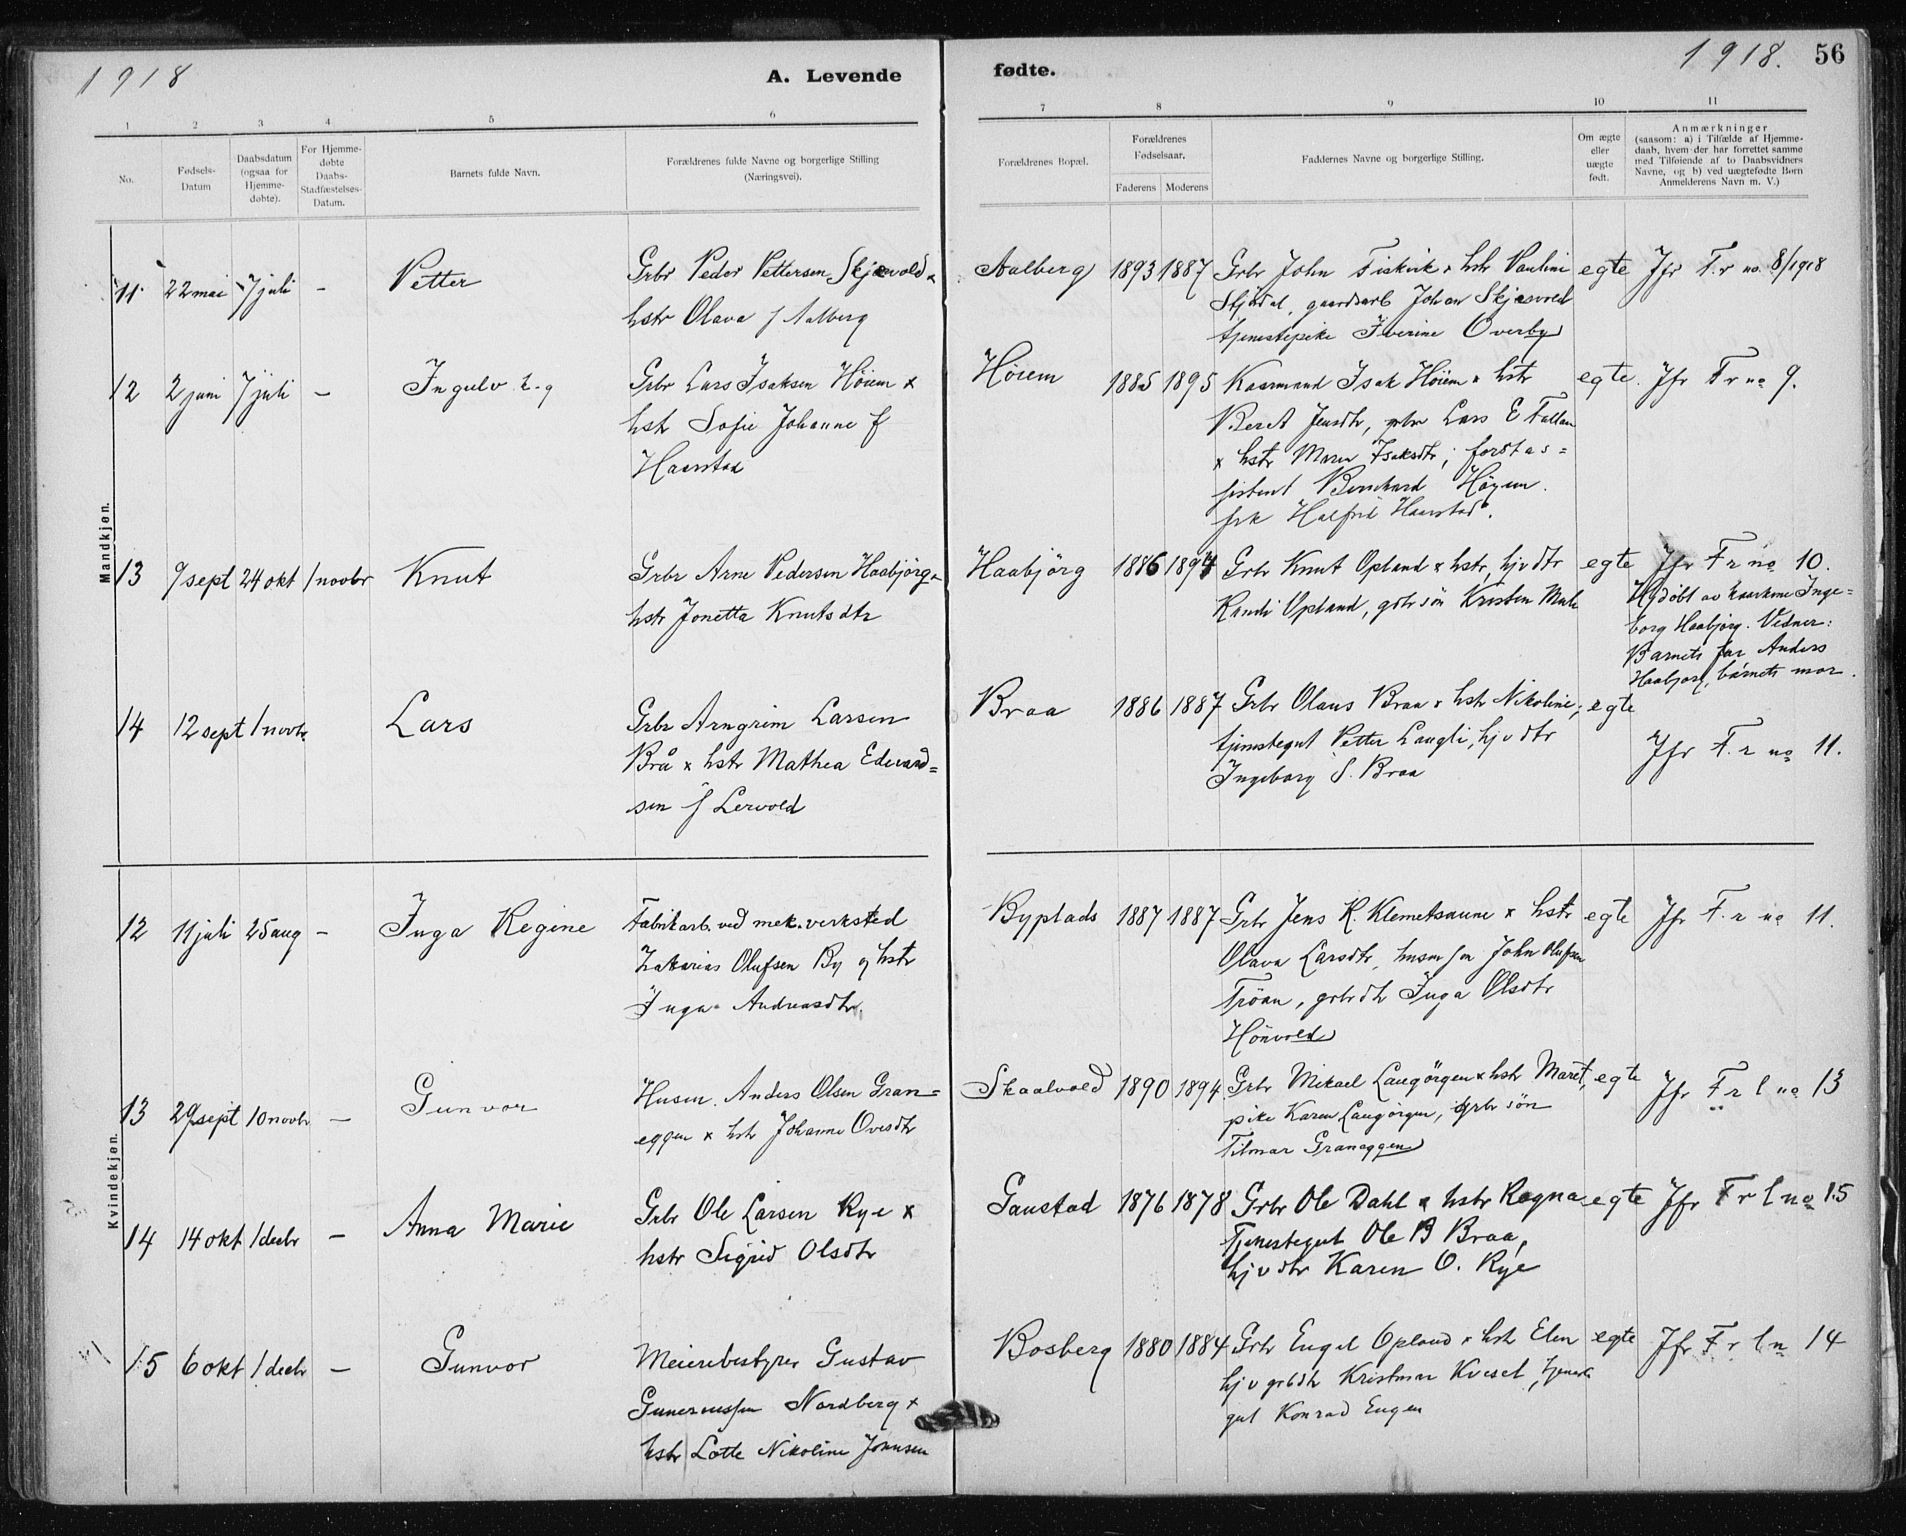 1918
A. Levende fødte.
1918. 56
1 2 3 4 5 6 7 8 9 10 11
No.
Fødsels-
Datum
Daabsdatum
(ogsaa for
Hjemme-
døbte).
For Hjemme-
døbte
Daabs-
Stadfæstelses-
Datum.
Barnets fulde Navn.
Forældrenes fulde Navne og borgerlige Stilling
(Næringsvei).
Forældrenes Bopæl.
Forældrenes
Fødselsaar.
Faderens Moderens
Faddernes Navne og borgerlige Stilling.
Om ægte
eller
uægte
født.
Anmærkninger
(saasom: a) i Tilfælde af Hjemme-
daab, hvem der har forrettet samme
med Tilføiende af to Daabsvidners
Navne, og b) ved uægtefødte Børn
Anmelderens Navn m. V.)
Mandkjøn.
11 22 mai 7 juli - Petter
Grbr Peder Pettersen Skjævold x
hstr Olava f Aalberg
Aalberg 1893 1887
Grbr John Fiskvik x hstr Pauline
gaardsarb Johan Skjævold
tjenestepike Iverine Overby
egte Jfr F. r no. 8/1918
12 2 juni 7 juli - Ingulv
Grbr Lars Isaksen Höiem x
hstr Sofie Johanne f
Haarstad
Höiem 1885 1895
Kaarmand Isak Höiem x hstr
Beret Jensdtr, grbr Lars E Fallan
x hstr Maren Isaksdtr; forstas=
sistent Bernhard Höyem.
frk Halfrid Haarstad.
egte. Jfr F r no 9.
13 9 sept 24 okt 1 novbr Knut
Grbr Arne Pedersen Haabjörg x
hstr Jonetta Knutsdtr
Haabjörg 1886 1894
Grbr Knut Opland x hstr, hjv dtr
Randi Opland, grbr sön Kristen
egte Jfr F r no 10.
Hjdöbt av kaarkone Inge=
borg Haabjörg. Vidner:
Barnets far Anders
Haabjørg, barnets mor.
14 12 sept 1 novbr. Lars
Grbr Arngrim Larsen
Brå x hstr Mathea Edvard=
sen f Lervold
Braa 1886 1887
Grbr Olaus Braa x hstr Nikoline;
tjenestegut Petter Langli, hjv dtr
Ingeborg S. Braa
egte
Jfr F. r no 11.
Kvindekjøn.
12 11 juli 25 aug - Inga Regine
Fabrikarb. ved mek. verksted
Zakarias Olufsen By og hstr
Inga Andreasdtr.
Byplads 1887 1887
Grbr Jens K. Klemetsaune x hstr
Olava Larsdtr, husm sön John Olufsen
Tröan, grbr dtr Inga Olsdtr
Hönvold
egte Jfr F. r no 11.
13 29 sept 10 novbr - Gunvor
Husm. Anders Olsen Gran=
eggen x hstr Johanne Ovesdtr
Skaalvold 1890 1894
Grbr Mikael Langörgen x hstr Maret,
pike Karen Langörgen, grbr sön
Tilmar Graneggen
egte Jfr F r l no 13
14 14 okt 1 decbr - Anna Marie
Grbr Ole Larsen Rye x
hstr Sigrid Olsdtr
Gaustad 1876 1878
Grbr Ole Dahl x hstr Ragna
Tjenestegut Ole B Braa,
hjv dtr Karen O. Rye
egte Jfr F r l no 15
15 6 okt 1 decbr - Gunvor
Meieribestyrer Gustav
Nordberg x
hstr Lotte Nikoline Johnsen
Bosberg 1880 1884
Grbr Engel Opland x hstr Elen
hjv grbdtr Kristmar Kveset, tjeneste
gut Konrad Eugen
egte Jfr F r l no 14